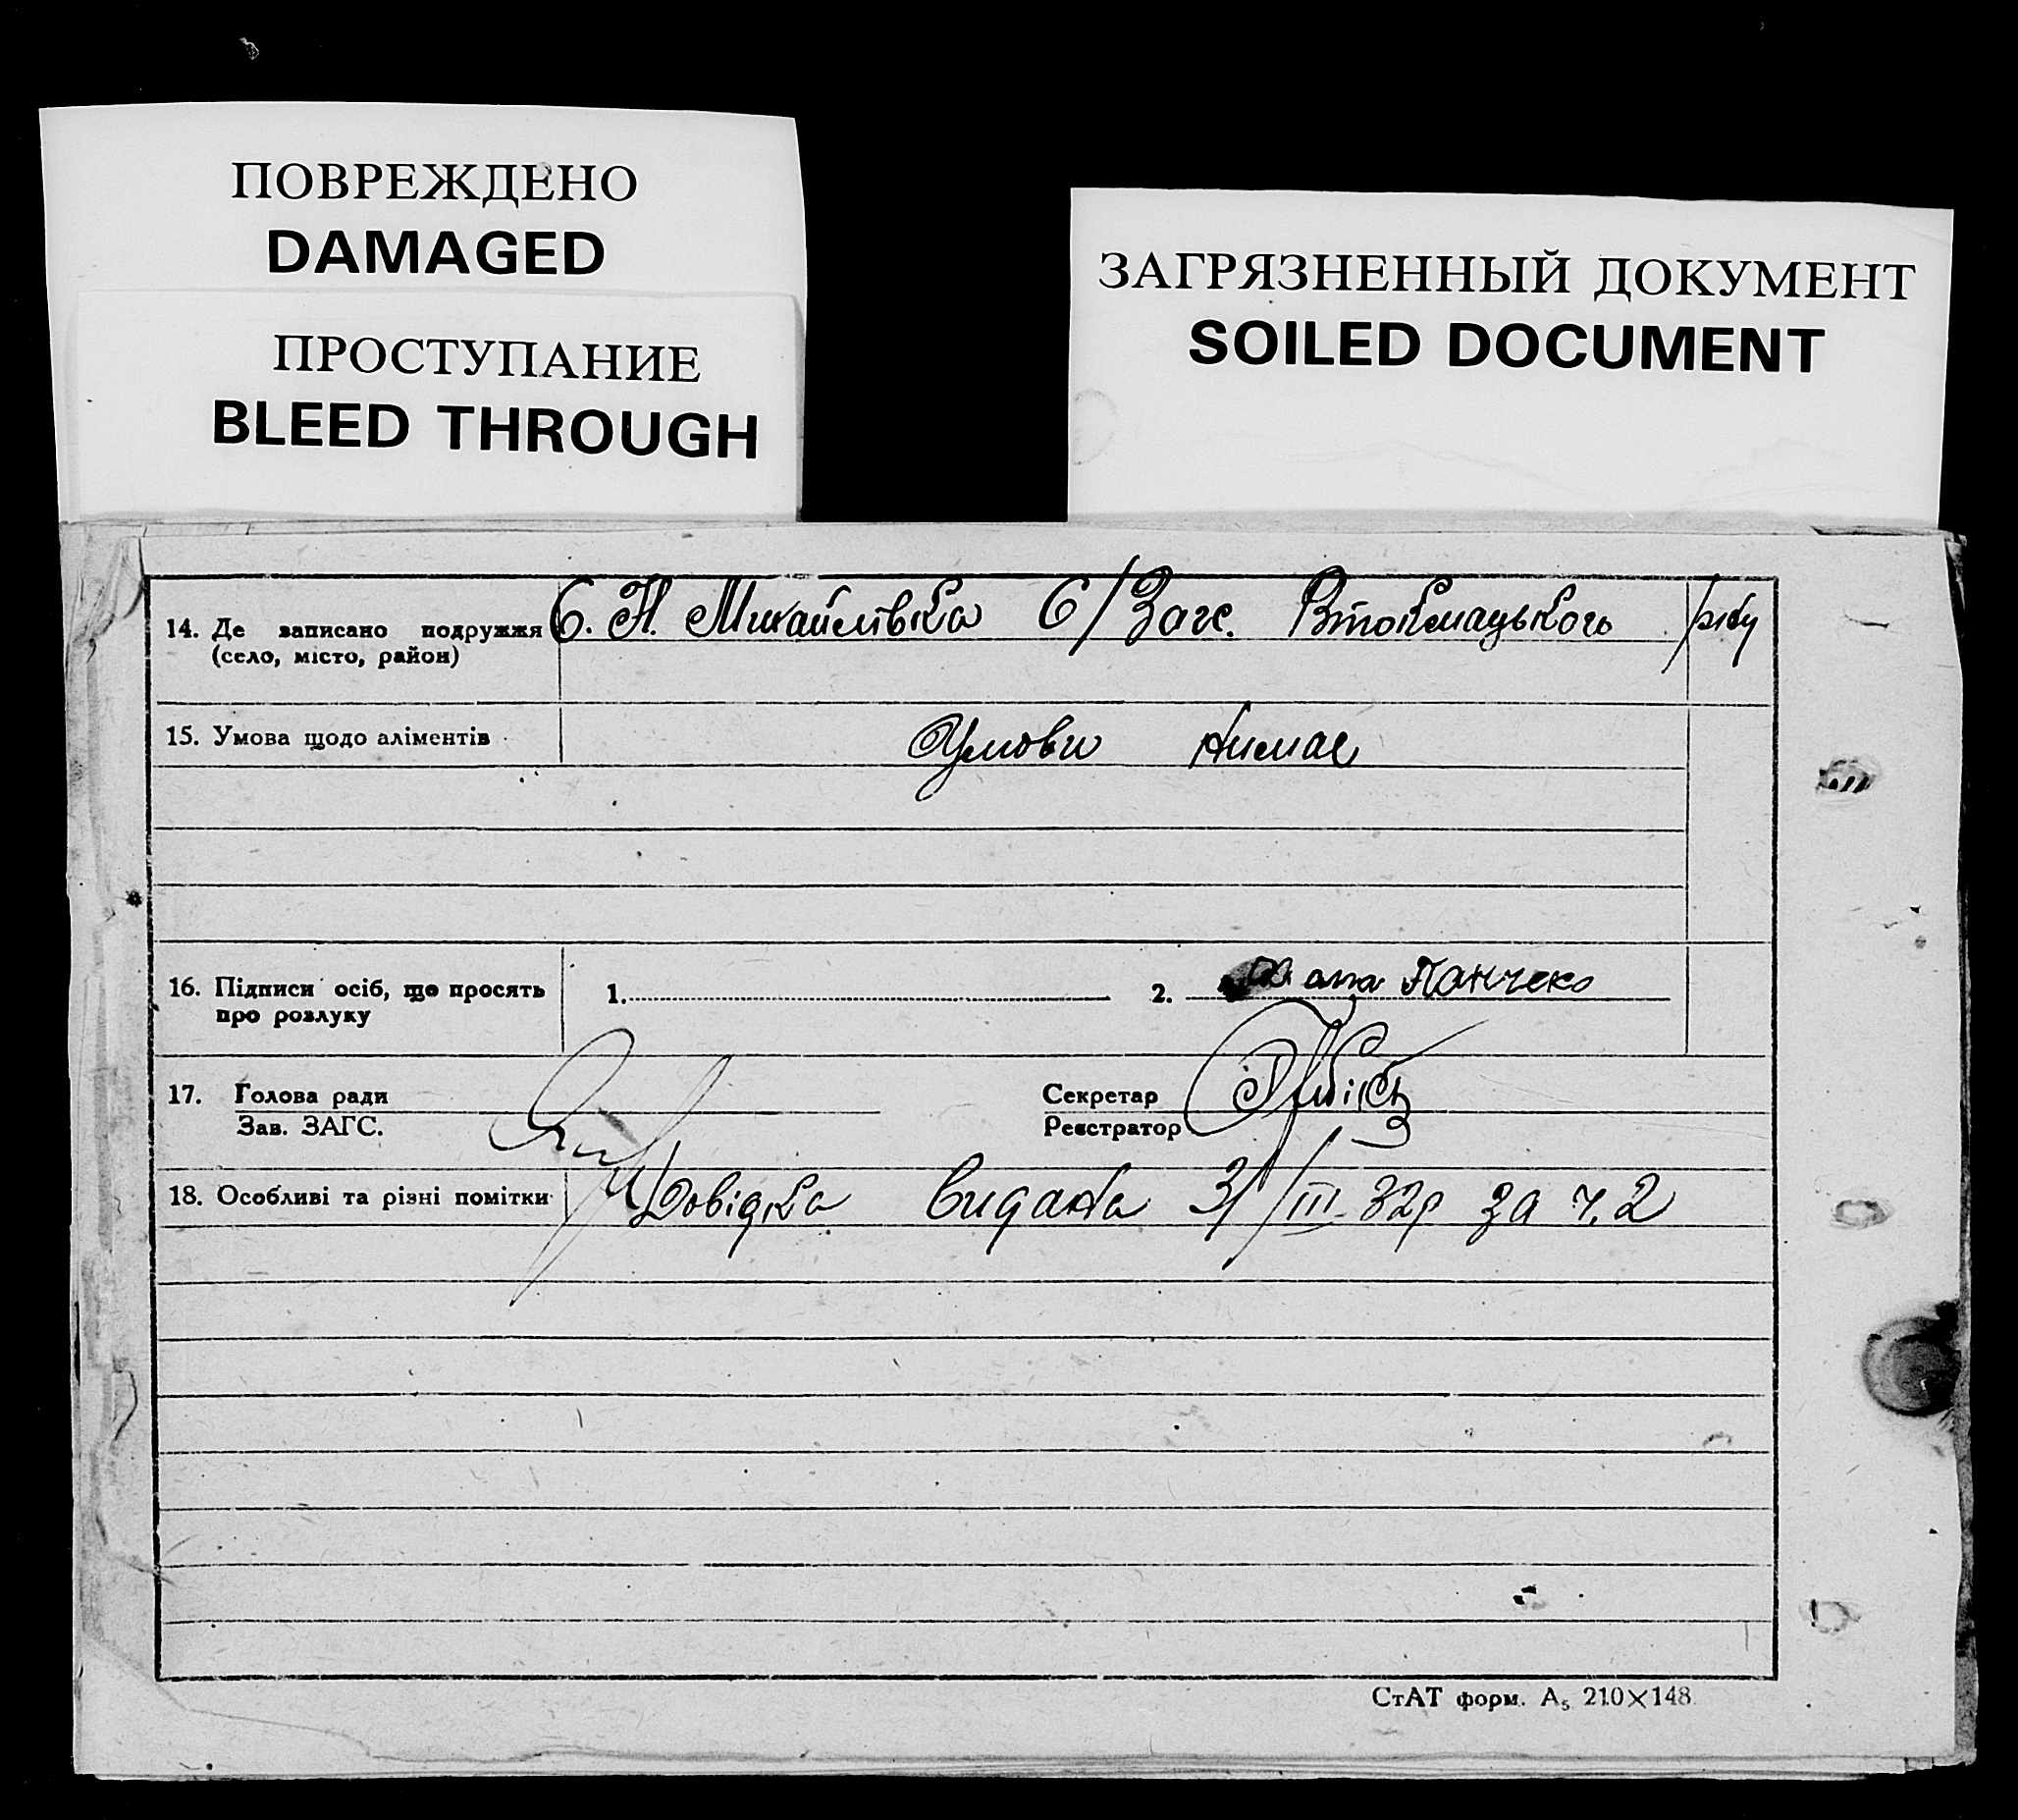 ПОВРЕЖДЕНО
DAMAGED
ПРОСТУПАНИЕ
BLEED THROUGH
ЗАГРЯЗНЕННЫЙ ДОКУМЕНТ
SOILED DOCUMENT
14. Де записано подружжя С. Н. Михайлівка С/Загс. Втокмацького р/ну
(село, місто, район)
15. Умова щодо аліментів Умови нимае
16. Підписи осіб, що просять 1. 2. Панчеко
про розлуку
17. Голова ради Секретар
Зав. ЗАГС. Реєстратор
18. Особливі та різні помітки Довідка видана 31/III-32р за ч. 2
СтАТ форм. А5 210×148